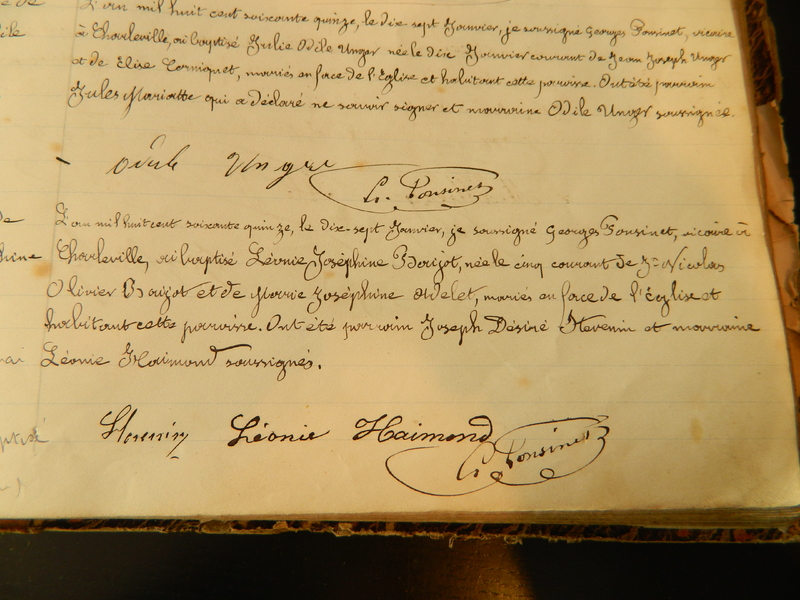 L'an mil huit cent soixante quinze, le dix sept Janvier, je soussigné Georges Ponsinet, vicaire
à Charleville, ai baptisé Julie Odile Unger née le dix Janvier courant de Jean Joseph Unger
et de Elise Corniquet, mariés en face de l'Eglise et habitant cette paroisse. Ont été parrain
Jules Mariatte qui a déclaré ne savoir signer et marraine Odile Unger soussignée.
Odile Unger
G. Ponsinet
L'an mil huit cent soixante quinze, le dix-sept Janvier, je soussigné Georges Ponsinet, vicaire à
Charleville, ai baptisé Léonie Joséphine Barijot, née le cinq courant de Jn Nicolas
Olivier Barijot et de Marie Joséphine Adelet, mariés en face de l'Église et
habitant cette paroisse. Ont été parrain Joseph Désiré Stevenin et marraine
Léonie Haimond soussignés.
Léonie Haimond
G. Ponsinet